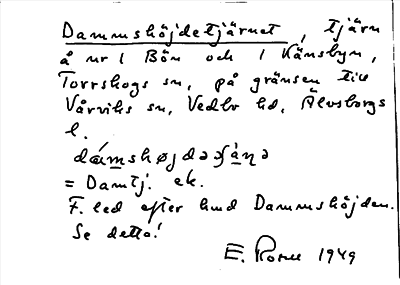 Dammshöjdetjärnet, tjärn
å nr 1 Bön och 1 Känsbyn,
Torrskogs sn, på gränsen till
Vårviks sn, Vedbo hd, Älvsborgs
l.
dámshøjdə
= Damtj. ek.
F. led efter hmd Dammshöjden.
Se detta!
E. 1949